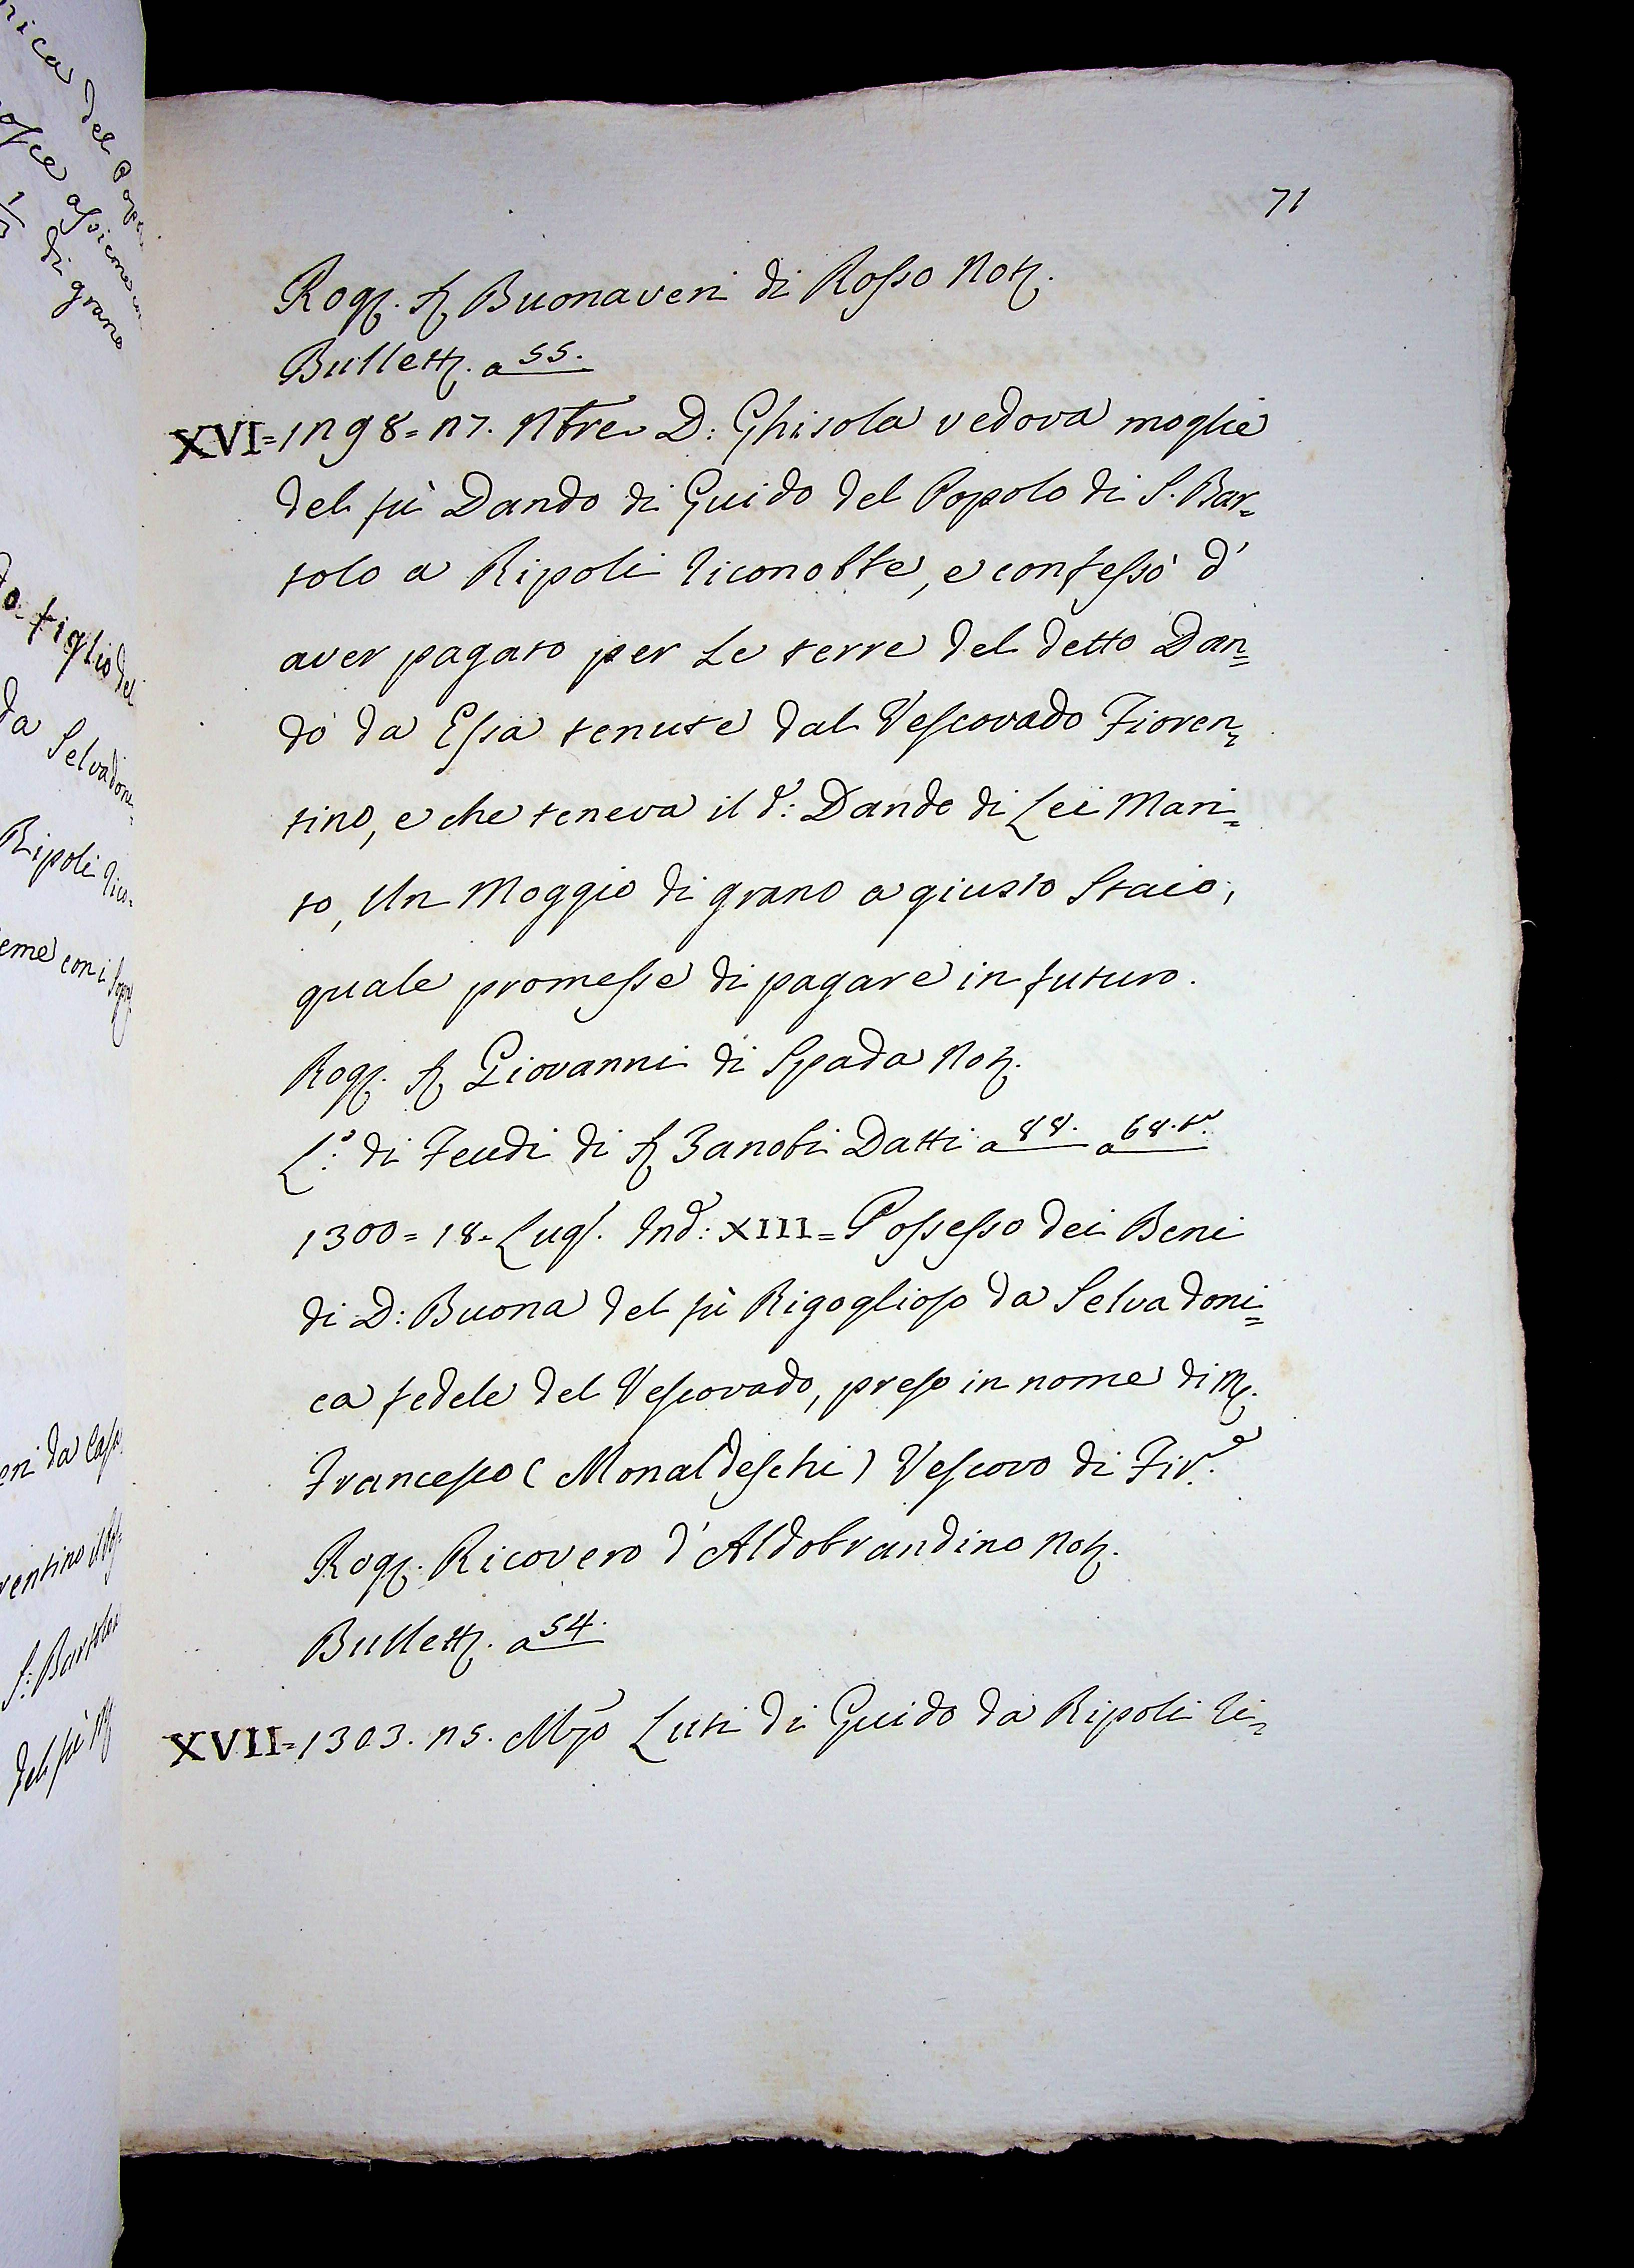 71
Rog. S. Buonaveri di Rosso Not.
Bullett. a 55.
XVI = 1298 = 27. Nbre D: Ghisola vedova moglie
del fù Dando di Guido del Popolo di S. Bar=
tolo a Ripoli riconobbe, e confessò d'
aver pagato per Le terre del detto Dan=
do da Essa tenute dal Vescovado Fioren=
tino, e che teneva il d.o: Dando di Lei Mari=
to, Un Moggio di grano a giusto Staio,
quale promesse di pagare in futuro.
Rog. S. Giovanni di Spada Not.
L.o: di Feudi di S. Zanobi Datti a 88. a 68. t.o
1300 = 18 = Lugl. Ind: XIII = Possesso dei Beni
di D: Buona del fù Rigoglioso da Selvadoni=
ca fedele del Vescovado, preso in nome di M.
Francesco (Monaldeschi) Vescovo di Fir.e
Rog. Ricovero d'Aldobrandino Not.
Bullett. a 54.
XVII = 1303. 25. Mzo Luti di Guido da Ripoli ri=
da figlio del
da Selvadoni=
Ripoli rico=
di grano